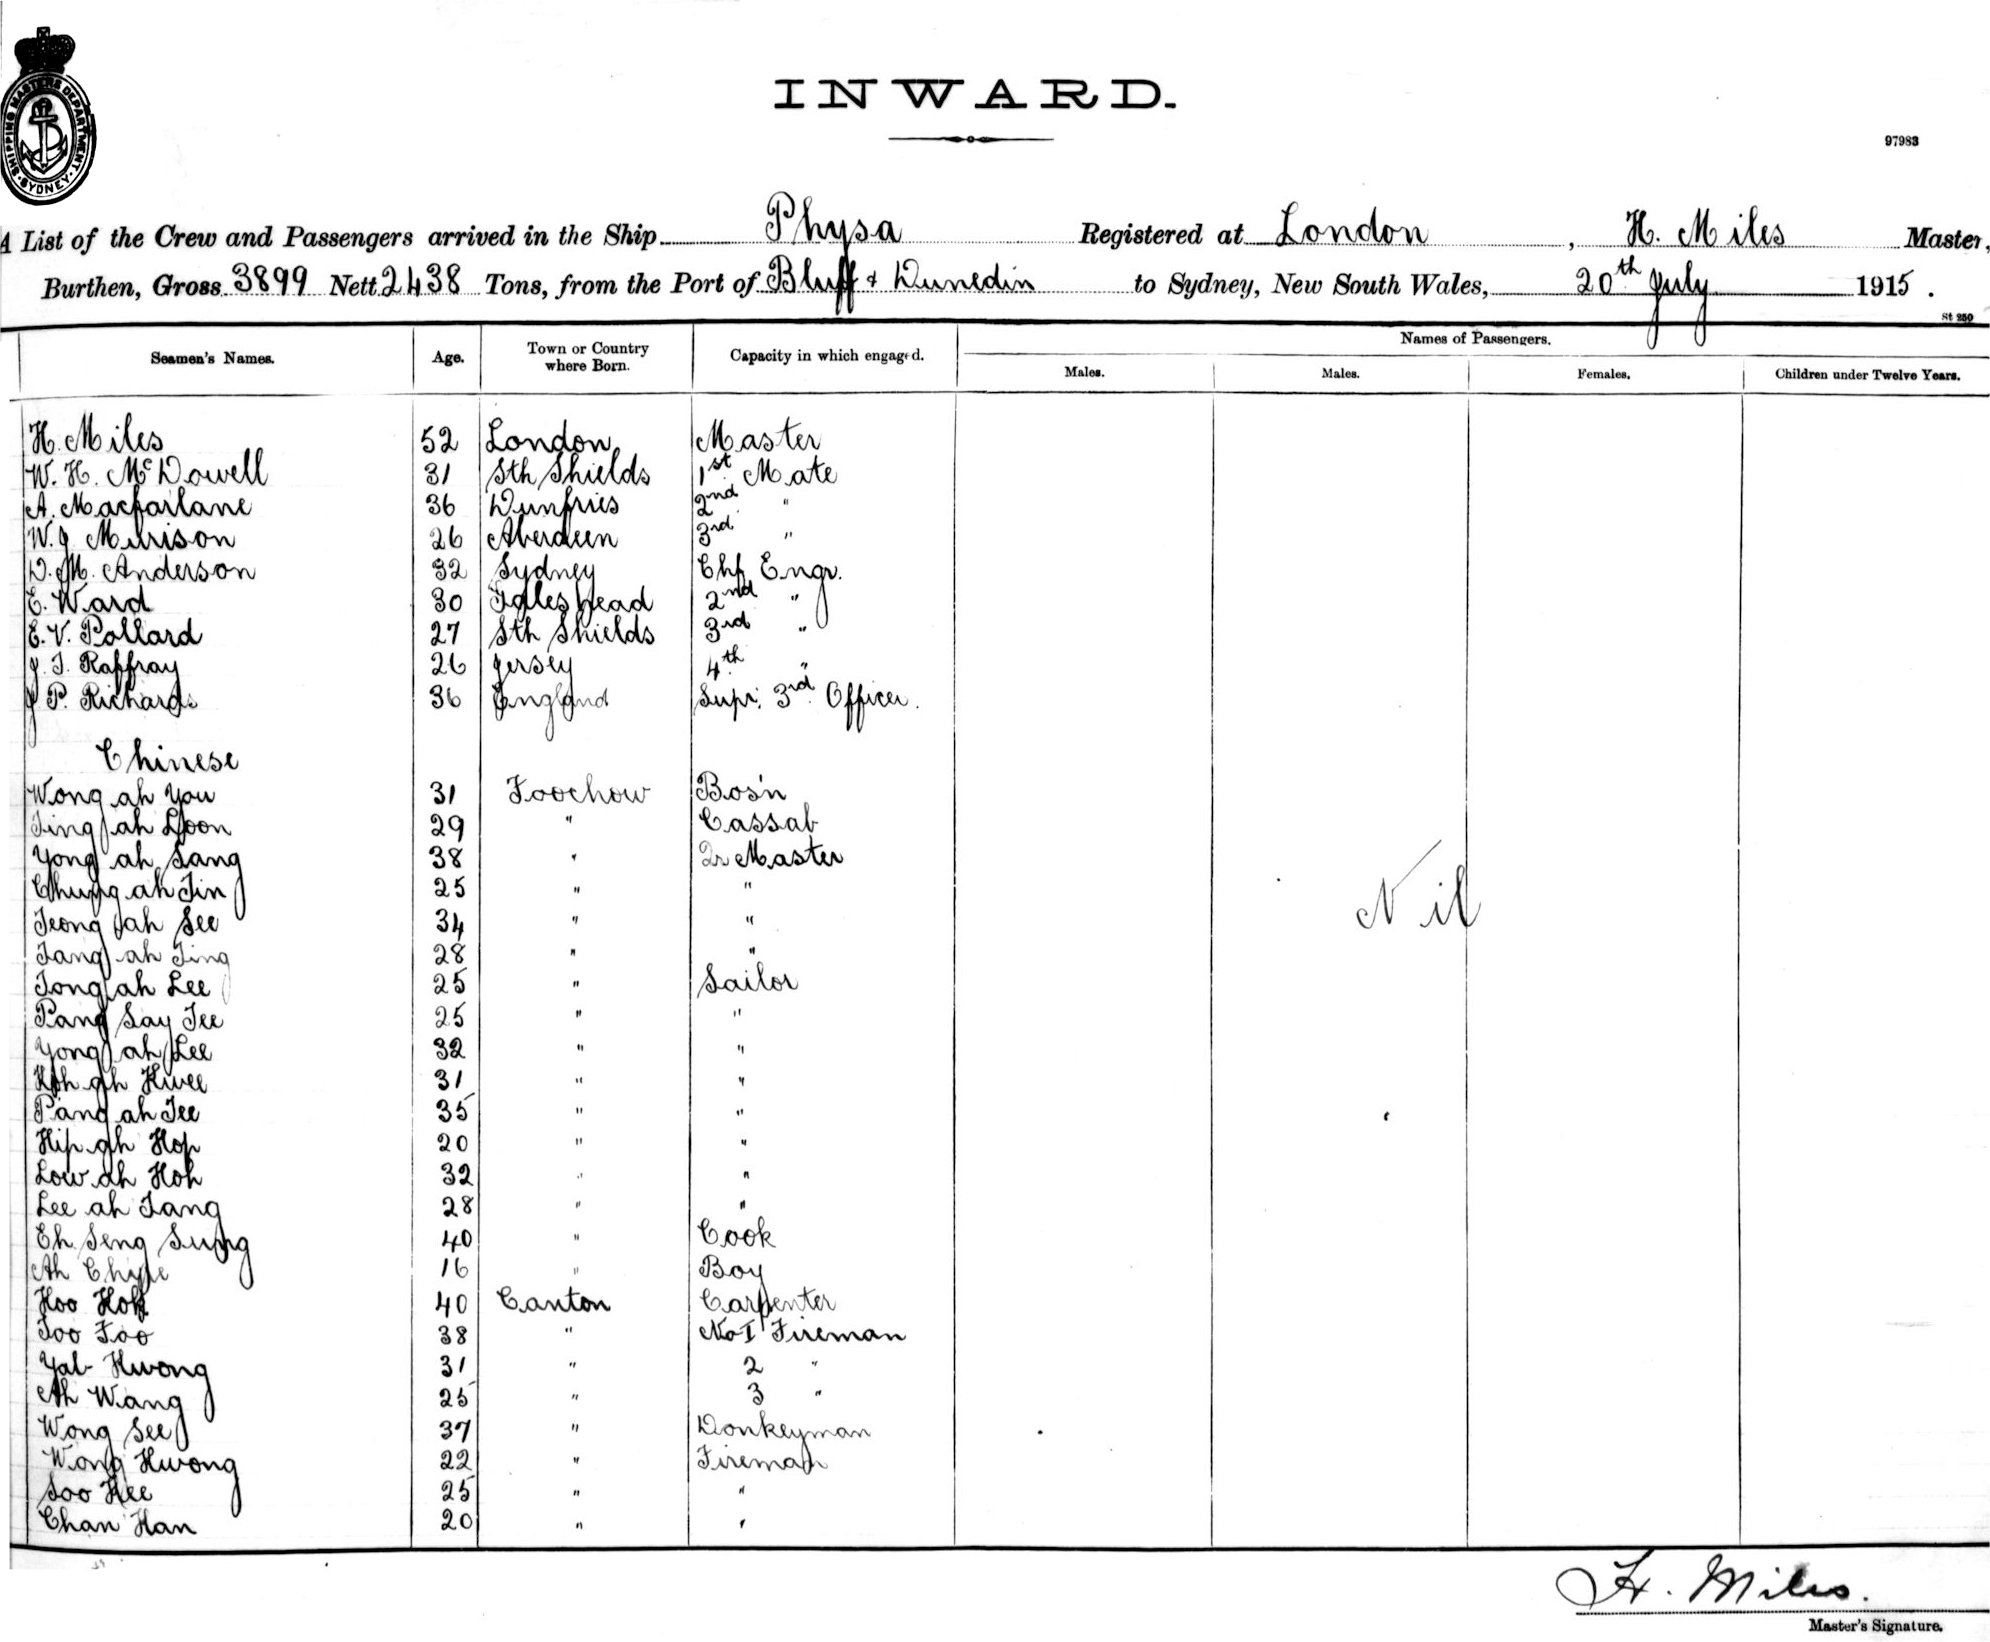 SHIPPING MASTERS DEPARTMENT. SYDNEY.
INWARD.
97983
A List of the Crew and Passengers arrived in the Ship Physa Registered at London, H. Miles Master,
Burthen, Gross 3899 Nett 2438 Tons, from the Port of Bluff & Dunedin to Sydney, New South Wales, 20th July 1915.
St 250
Seamen's Names. Age. Town or Country where Born. Capacity in which engaged. Names of Passengers.
Males. Males. Females. Children under Twelve Years.
H. Miles 52 London Master
W. H. McDowell 31 Sth Shields 1st Mate
A. Macfarlane 36 Dunfries 2nd "
W. J Murison 26 Aberdeen 3rd "
D. M. Anderson 32 Sydney Chf Engr.
E. Ward 30 2nd "
E. V. Pollard 27 Sth Shields 3rd "
J. T. Raffray 26 Jersey 4th "
J P. Richards 36 England Supr. 3rd Officer.
Chinese
Wong ah You 31 Foochow Bos'n
Ting ah Loon 29 " Cassab
Yong ah Sang 38 " Qr Master
Chung ah Tin 25 " "
Teong ah See 34 " "
Tang ah Ting 28 " "
Tong ah Lee 25 " Sailor
Pang Say Tee 25 " "
Yong ah Lee 32 " "
Hoh ah Kwee 31 " "
Pang ah Tee 35 " "
Hip ah Hop 20 " "
Low ah Hoh 32 " "
Lee ah Tang 28 " "
Eh Seng Sung 40 " Cook
Ah Chye 16 " Boy
Hoo Hok 40 Canton Carpenter
Too Foo 38 " No I Fireman
Yab Kwong 31 " 2 "
Ah Wang 25 " 3 "
Wong See 37 " Donkeyman
Wong Kwong 22 " Fireman
Soo Hee 25 " "
Chan Han 20 " "
Nil
H. Miles.
Master's Signature.